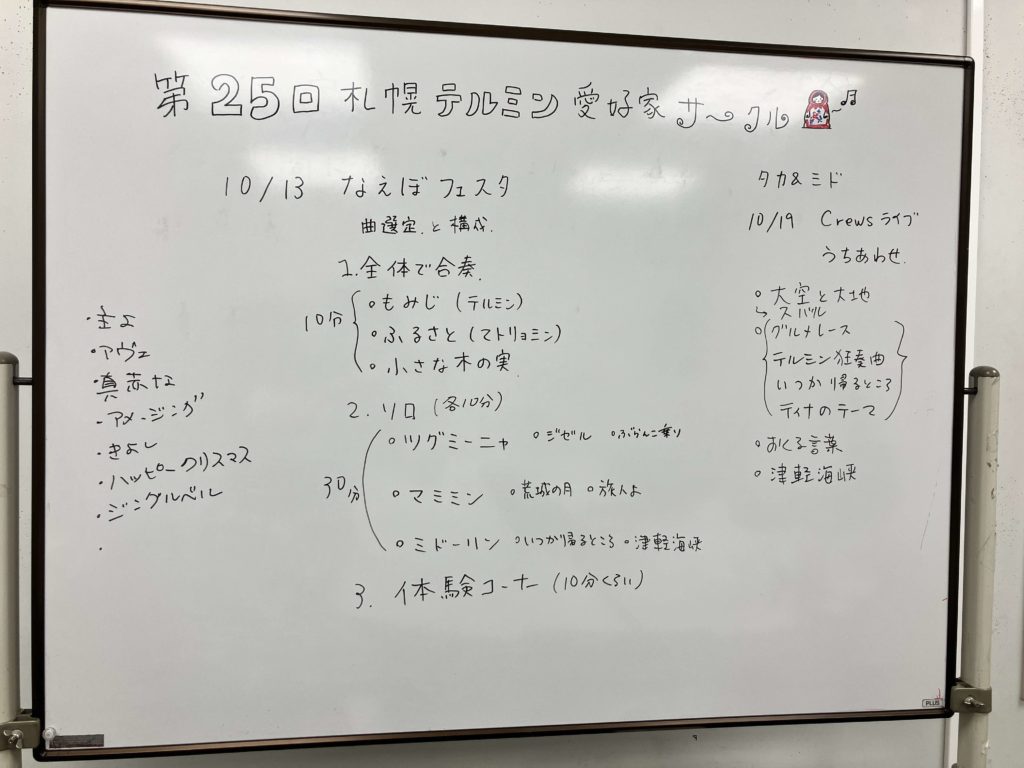 第25回 札幌 テルミン 愛好家 サークル
10/13 なえぼフェスタ
曲選定 と 構成.
1.全体で合奏.
10分
○もみじ (テルミン)
○ふるさと (マトリョミン)
○小さな木の実
2. ソロ (各10分)
30分
○ツグミーニャ ○ジゼル ○ぶらんこ乗り
○マミミン ○荒城の月 ○旅人よ
○ミドーリン ○いつか帰るところ ○津軽海峡
3. 体験コーナー (10分くらい)
・主よ
・アヴェ
・真赤な
・アメージング
・きよし
・ハッピークリスマス
・ジングルベル
・
タカ&ミド
10/19 Crews ライブ
うちあわせ.
○大空と大地
↳ スバル
○グルメレース
テルミン狂奏曲
いつか帰るところ
ティナのテーマ
○おくる言葉
○津軽海峡
PLUS